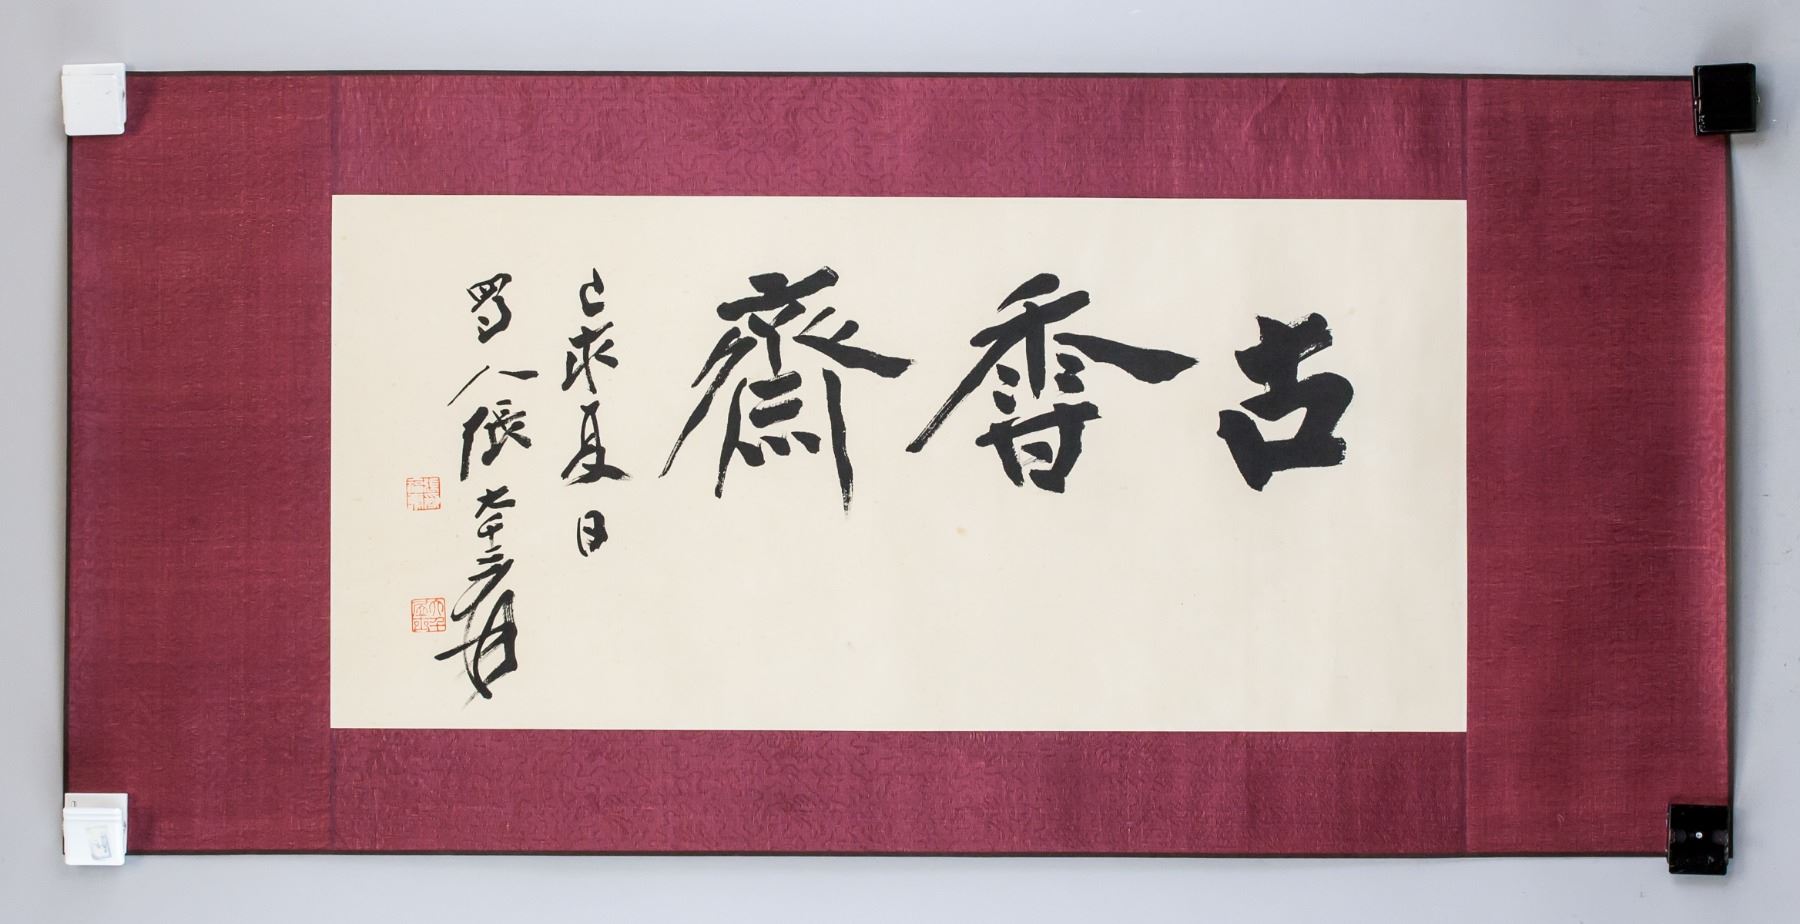 古香齋
己未夏日
蜀人張大千爰